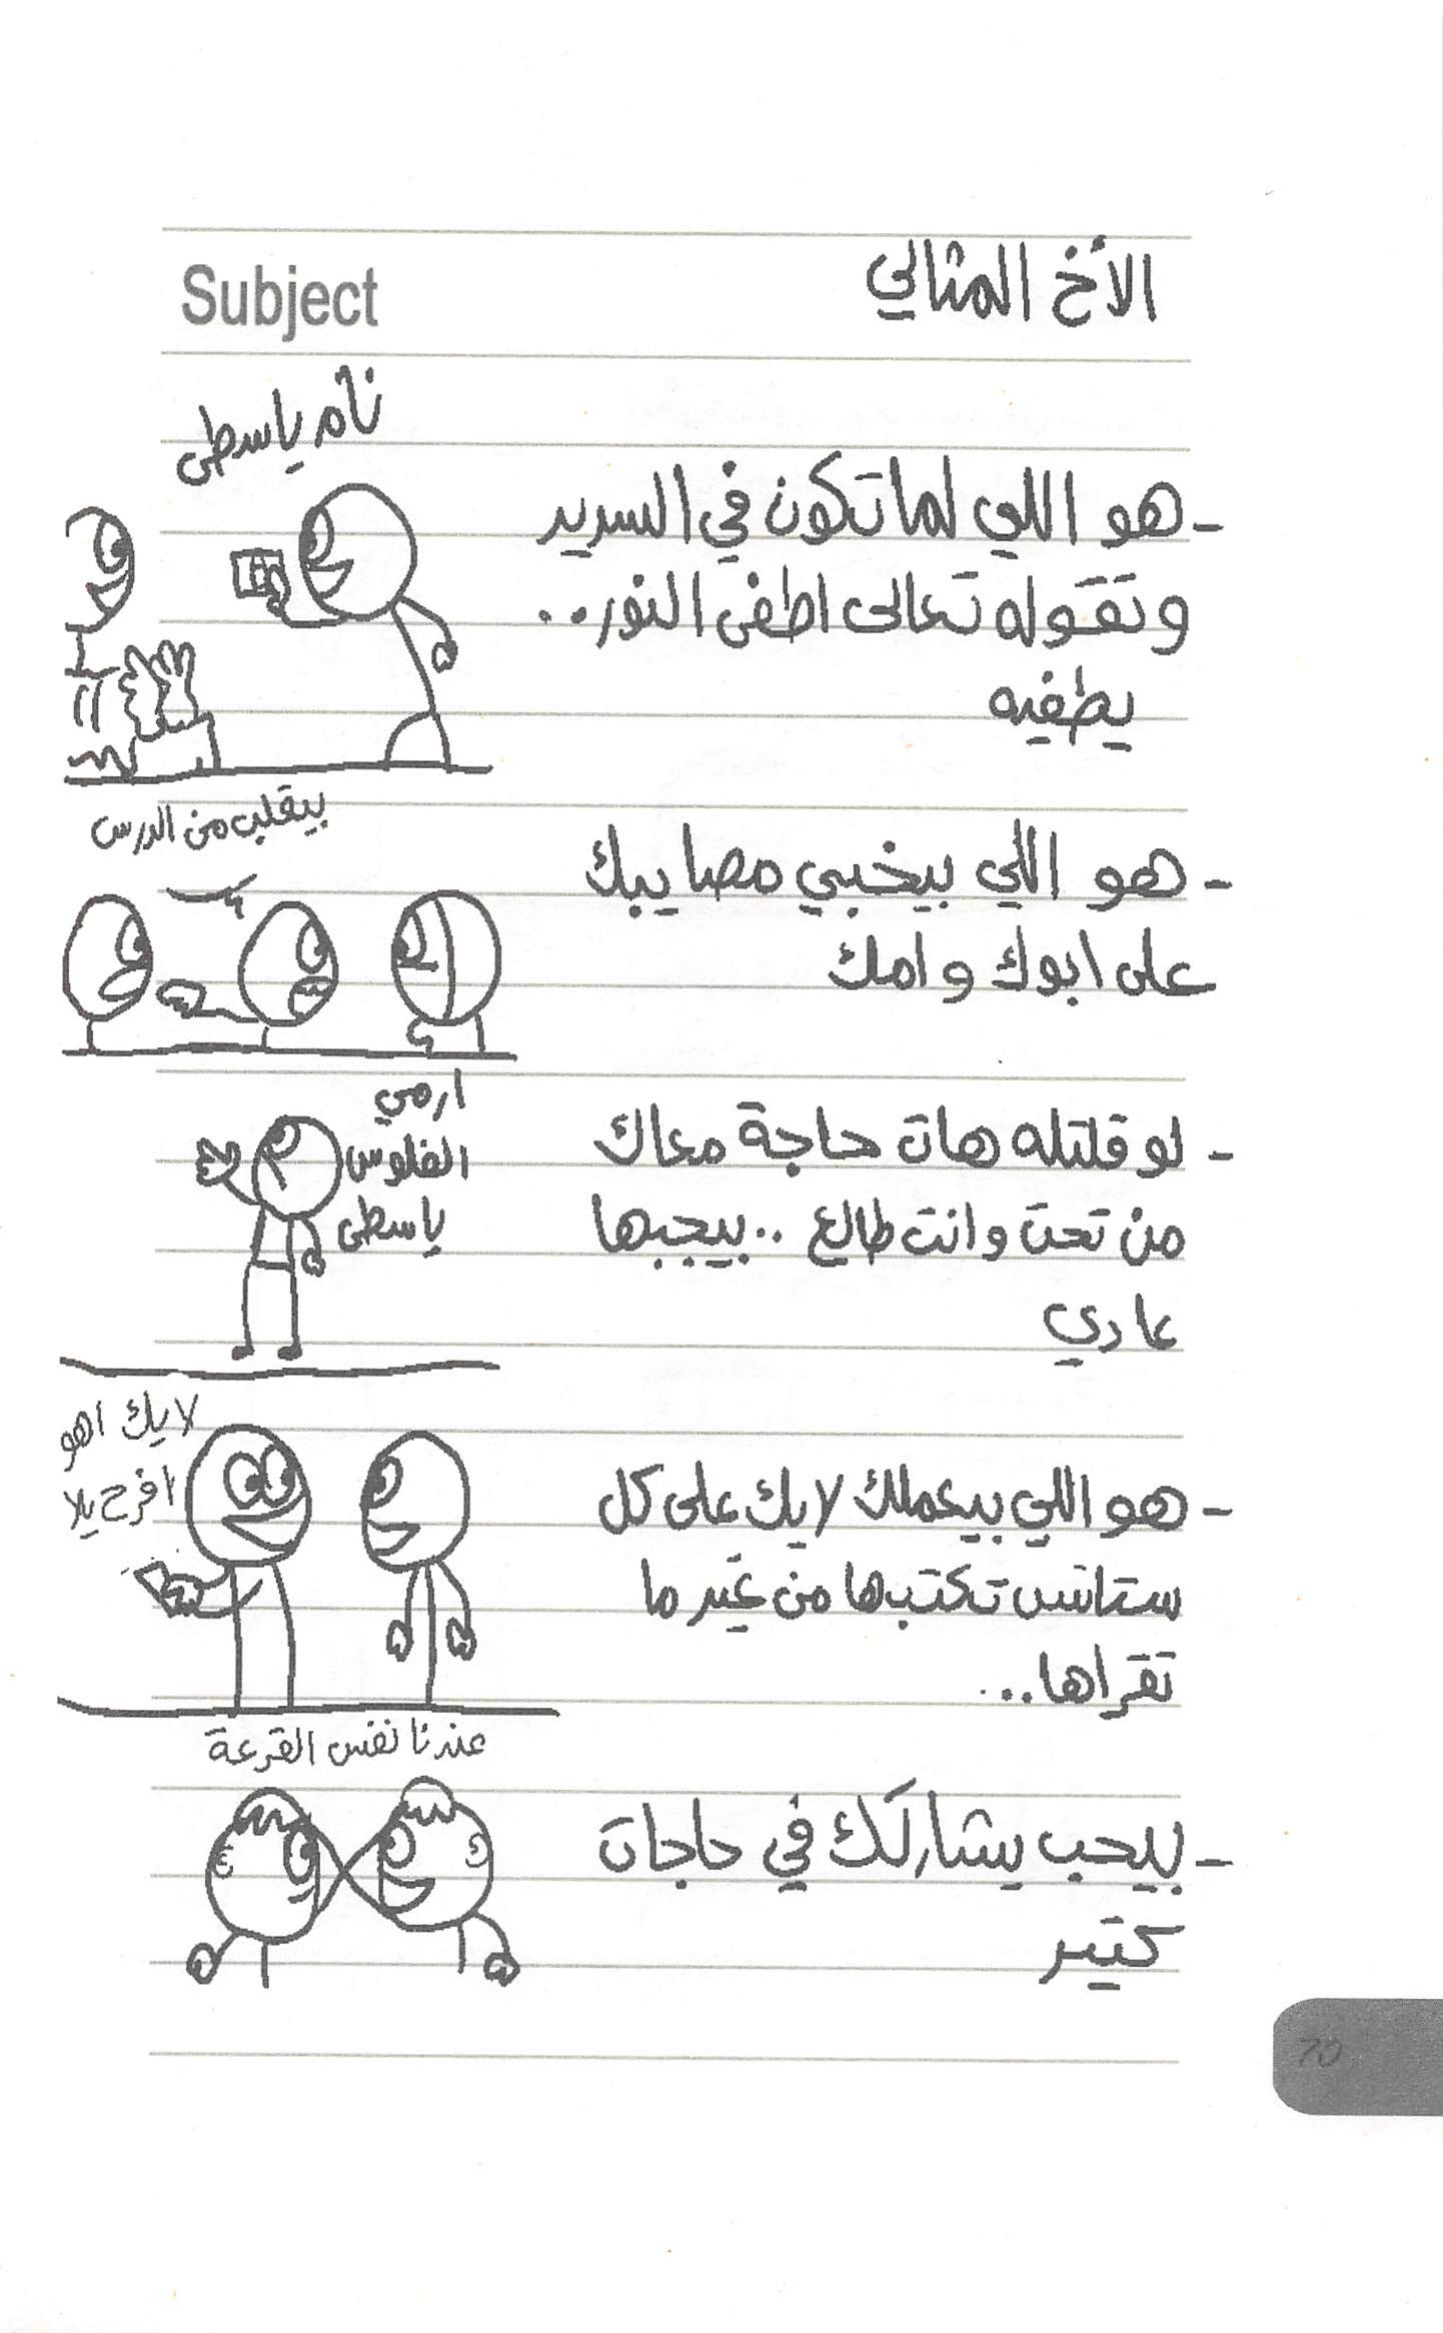 الأخ المثالي
Subject
نام ياسطى
- هو اللي لما تكون في السرير
وتقوله تعالى اطفى النور..
يطفيه
بيقلب من الدرس
- هو اللي بيخبي مصايبك
على ابوك وامك
ارمي
الفلوس
ياسطى
- لو قلتله هات حاجة معاك
من تحت وانت طالع .. بيجبها
عادي
لايك اهو
افرح يلا
- هو اللي بيعملك لايك على كل
ستاتس تكتبها من غير ما
تقراها...
عندنا نفس القرعة
- بيحب يشاركك في حاجات
كتير
70